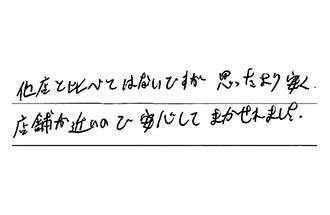 他店と比べてはないですが 思ったより安く、
店舗が近いので安心してまかせれました。